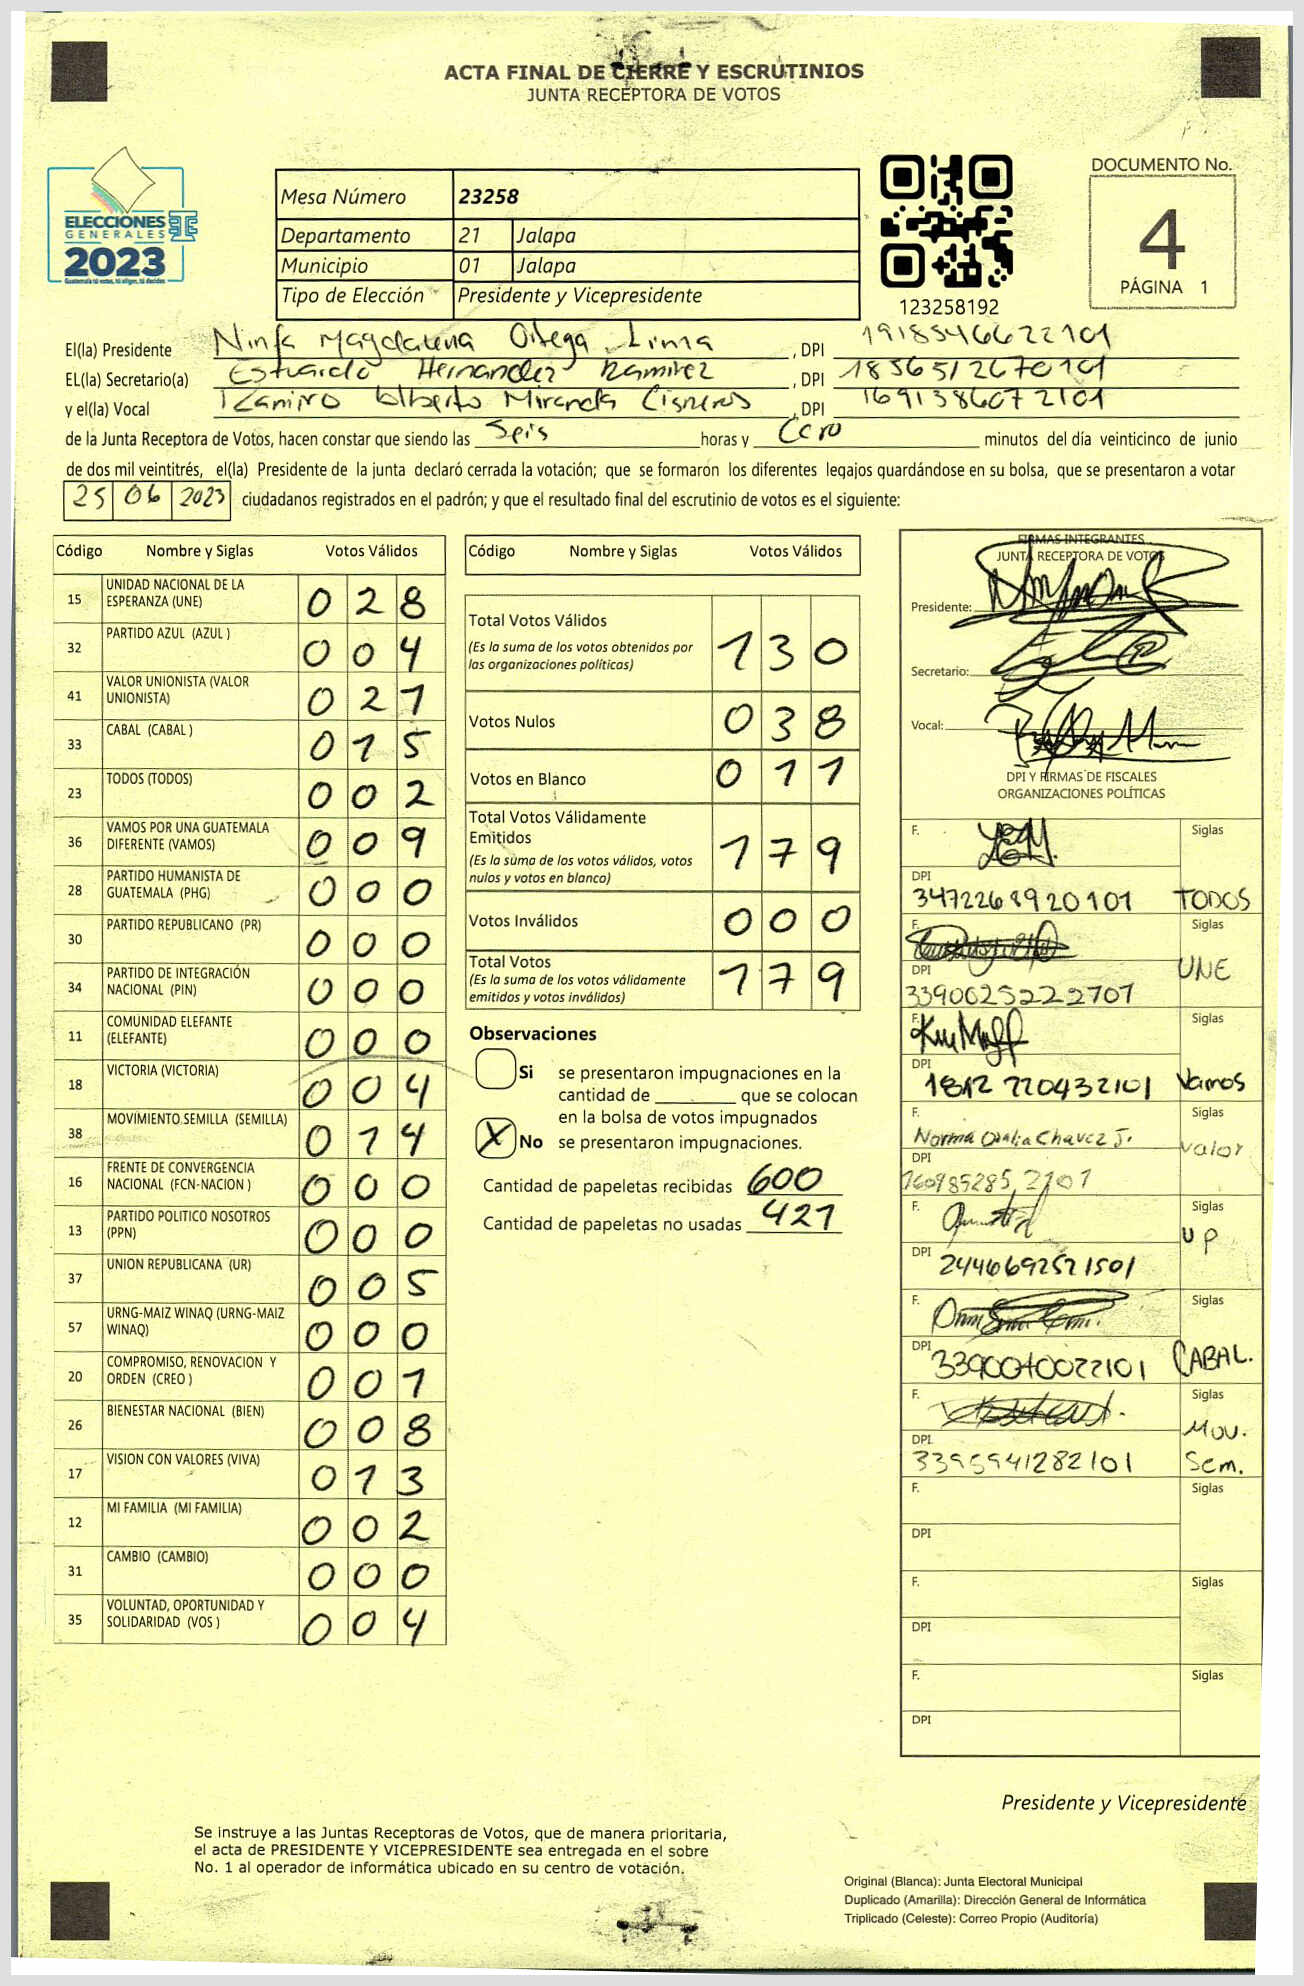 ACTA FINAL DE CIERRE Y ESCRUTINIOS
JUNTA RECEPTORA DE VOTOS
ELECCIONES
GENERALES
2023
Mesa Número 23258
Departamento 21 Jalapa
Municipio 01 Jalapa
Tipo de Elección Presidente y Vicepresidente
123258192
DOCUMENTO No.
4
PÁGINA 1
El(la) Presidente Ninfa Magdalena Ortega Lima , DPI 1918546622101
EL(la) Secretario(a) Estuardo Hernandez Ramirez , DPI 1856512670101
y el(la) Vocal Ramiro Alberto Miranda Cisneros , DPI 1691386072101
de la Junta Receptora de Votos, hacen constar que siendo las Seis horas y Cero minutos del día veinticinco de junio
de dos mil veintitrés, el(la) Presidente de la junta declaró cerrada la votación; que se formaron los diferentes legajos quardándose en su bolsa, que se presentaron a votar
25 06 2023 ciudadanos registrados en el padrón; y que el resultado final del escrutinio de votos es el siguiente:
Código Nombre y Siglas Votos Válidos
15 UNIDAD NACIONAL DE LA ESPERANZA (UNE) 0 2 8
32 PARTIDO AZUL (AZUL ) 0 0 4
41 VALOR UNIONISTA (VALOR UNIONISTA) 0 2 1
33 CABAL (CABAL ) 0 1 5
23 TODOS (TODOS) 0 0 2
36 VAMOS POR UNA GUATEMALA DIFERENTE (VAMOS) 0 0 9
28 PARTIDO HUMANISTA DE GUATEMALA (PHG) 0 0 0
30 PARTIDO REPUBLICANO (PR) 0 0 0
34 PARTIDO DE INTEGRACIÓN NACIONAL (PIN) 0 0 0
11 COMUNIDAD ELEFANTE (ELEFANTE) 0 0 0
18 VICTORIA (VICTORIA) 0 0 4
38 MOVIMIENTO SEMILLA (SEMILLA) 0 1 4
16 FRENTE DE CONVERGENCIA NACIONAL (FCN-NACION ) 0 0 0
13 PARTIDO POLITICO NOSOTROS (PPN) 0 0 0
37 UNION REPUBLICANA (UR) 0 0 5
57 URNG-MAIZ WINAQ (URNG-MAIZ WINAQ) 0 0 0
20 COMPROMISO, RENOVACION Y ORDEN (CREO ) 0 0 1
26 BIENESTAR NACIONAL (BIEN) 0 0 8
17 VISION CON VALORES (VIVA) 0 1 3
12 MI FAMILIA (MI FAMILIA) 0 0 2
31 CAMBIO (CAMBIO) 0 0 0
35 VOLUNTAD, OPORTUNIDAD Y SOLIDARIDAD (VOS ) 0 0 4
Código Nombre y Siglas Votos Válidos
Total Votos Válidos 1 3 0
(Es la suma de los votos obtenidos por
las organizaciones políticas)
Votos Nulos 0 3 8
Votos en Blanco 0 1 1
Total Votos Válidamente
Emitidos 1 7 9
(Es la suma de los votos válidos, votos
nulos y votos en blanco)
Votos Inválidos 0 0 0
Total Votos 1 7 9
(Es la suma de los votos válidamente
emitidos y votos inválidos)
Observaciones
Si se presentaron impugnaciones en la
cantidad de ________ que se colocan
en la bolsa de votos impugnados
X No se presentaron impugnaciones.
Cantidad de papeletas recibidas 600
Cantidad de papeletas no usadas 421
FIRMAS INTEGRANTES
JUNTA RECEPTORA DE VOTOS
Presidente:
Secretario:
Vocal:
DPI Y FIRMAS DE FISCALES
ORGANIZACIONES POLÍTICAS
F. Siglas
DPI
3472268920101 TODOS
F. Siglas
DPI UNE
3390625222707
F. Siglas
DPI
1812 220432101 Vamos
F. Siglas
Norma Chavez J. Valor
DPI
F. Siglas
UP
DPI 2446692521501
F. Siglas
DPI 3390040022101 CABAL.
F. Siglas
Mov.
DPI
3395941282101 Sem.
F. Siglas
DPI
F. Siglas
DPI
F. Siglas
DPI
Presidente y Vicepresidente
Se instruye a las Juntas Receptoras de Votos, que de manera prioritaria,
el acta de PRESIDENTE Y VICEPRESIDENTE sea entregada en el sobre
No. 1 al operador de informática ubicado en su centro de votación.
Original (Blanca): Junta Electoral Municipal
Duplicado (Amarilla): Dirección General de Informática
Triplicado (Celeste): Correo Propio (Auditoría)